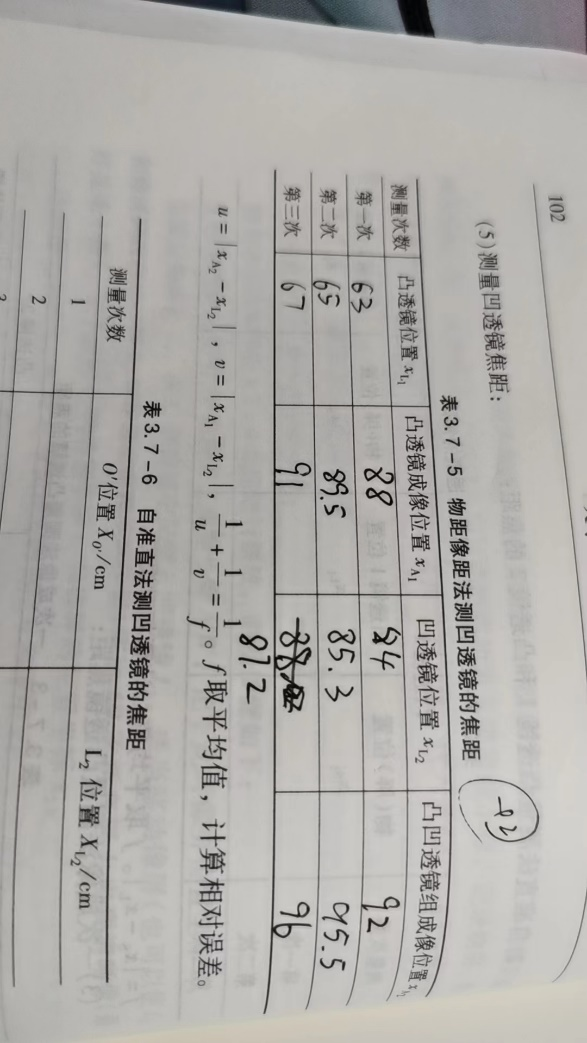 102
(5)测量凹透镜焦距：
表3.7-5 物距像距法测凹透镜的焦距
-92
测量次数 凸透镜位置 x_{L_1} 凸透镜成像位置 x_{A_1} 凹透镜位置 x_{L_2} 凸凹透镜组成像位置
第一次 63 88 84 92
第二次 65 89.5 85.3 95.5
第三次 67 91 96
87.2
u = |x_{A_2} - x_{L_2}|，v = |x_{A_1} - x_{L_2}|，1/u + 1/v = 1/f。f取平均值，计算相对误差。
表3.7-6 自准直法测凹透镜的焦距
测量次数 O'位置 X_{O'}/cm L_2 位置 X_{L_2}/cm
1
2
3